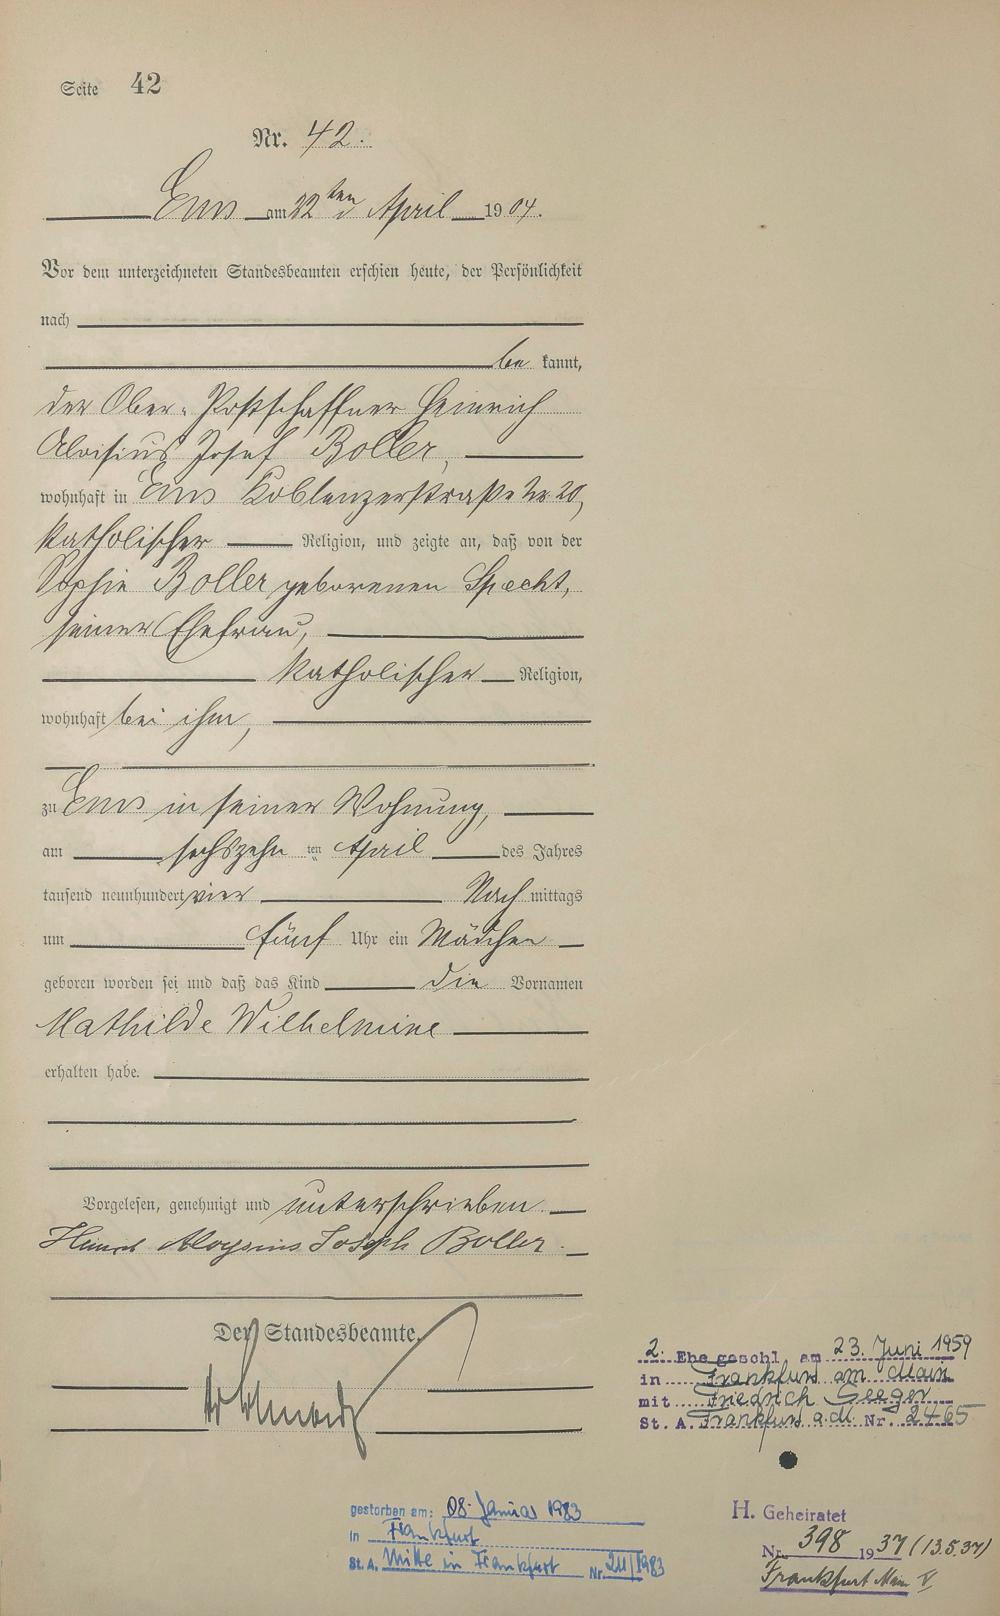 Seite 42
Nr. 42.
Ems am 22ten April 1904.
Vor dem unterzeichneten Standesbeamten erschien heute, der Persönlichkeit
nach
be kannt,
der Ober-Postschaffner Heinrich
Aloisius Josef Boller,
wohnhaft in Ems Koblenzerstraße Nr 20,
katholischer Religion, und zeigte an, daß von der
Sophie Boller geborenen Specht,
seiner Ehefrau,
katholischer Religion,
wohnhaft bei ihm,
zu Ems in seiner Wohnung,
am sechszehn ten April des Jahres
tausend neunhundert vier Nach mittags
um fünf Uhr ein Mädchen
geboren worden sei und daß das Kind die Vornamen
Mathilde Wilhelmine
erhalten habe.
Vorgelesen, genehmigt und unterschrieben.
Heinrich Aloysius Joseph Boller.
Der Standesbeamte.
2. Ehe geschl. am 23. Juni 1959
in Frankfurt am Main
mit Friedrich Seeger
St. A. Frankfurt a.M. Nr. 2465
gestorben am: 08. Januar 1983
in Frankfurt
St. A. Mitte in Frankfurt Nr. 211/1983
H. Geheiratet
Nr. 398 1937 (13.5.37)
Frankfurt Main V